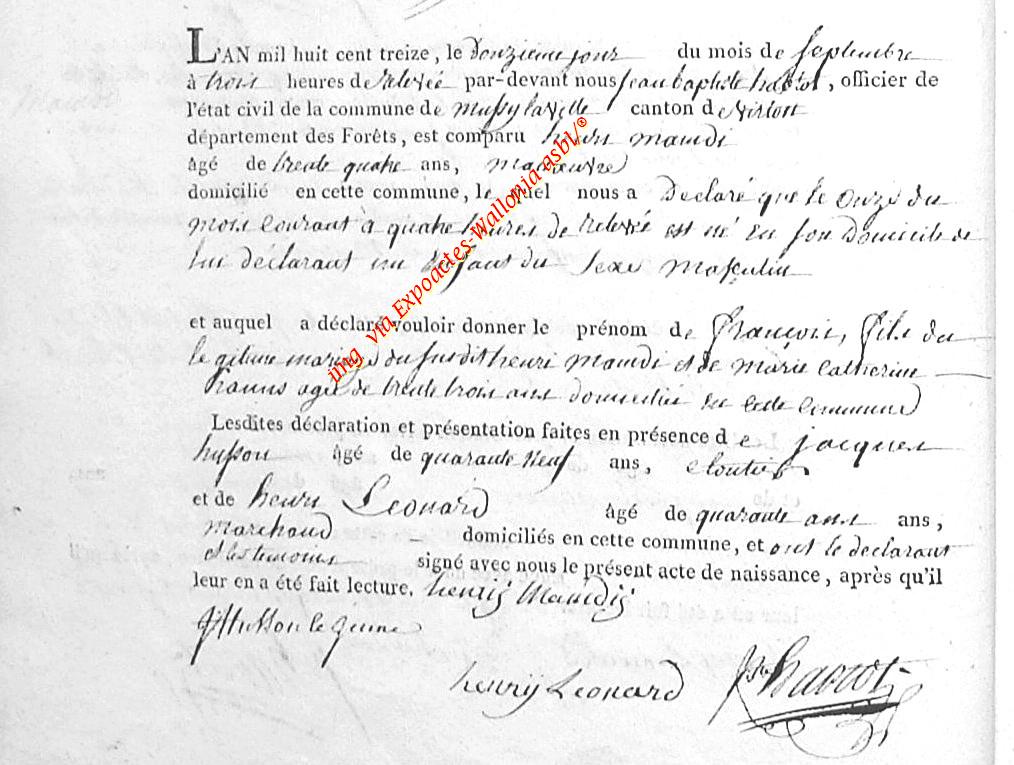 L'AN mil huit cent treize, le douzieme jour du mois de septembre
à trois heures de relevée par-devant nous jean baptiste habtot, officier de
l'état civil de la commune de mussy la ville canton de virton
département des Forêts, est comparu henri maudi
âgé de trente quatre ans, manoeuvre
domicilié en cette commune, le quel nous a declaré que le onze du
mois courant à quatre heures de relevée est né en son domicile de
lui déclarant un enfant du sexe masculin
et auquel a déclaré vouloir donner le prénom de françois, fils du
legitime mariage du susdit henri maudi et de marie catherine
agée de trente trois ans domiciliée en cette commune
Lesdites déclaration et présentation faites en présence de jacques
husson âgé de quarante neuf ans, cloutier
et de henri Leonard âgé de quarante ans ans,
marchand domiciliés en cette commune, et ont le declarant
et les temoins signé avec nous le présent acte de naissance, après qu'il
leur en a été fait lecture. henrij Maudij
J Husson le jeune
henrij Leonard
img via Expoactes-Wallonia-asbl/©